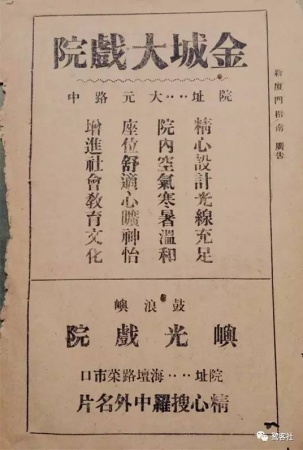 新廈門指南 廣告
金城大戲院
院址‥‥大元路中
精心設計光線充足
院內空氣寒暑溫和
座位舒適心曠神怡
增進社會教育文化
鼓浪嶼
嶼光戲院
院址‥‥海壇路菜市口
精心搜羅中外名片
鹭客社